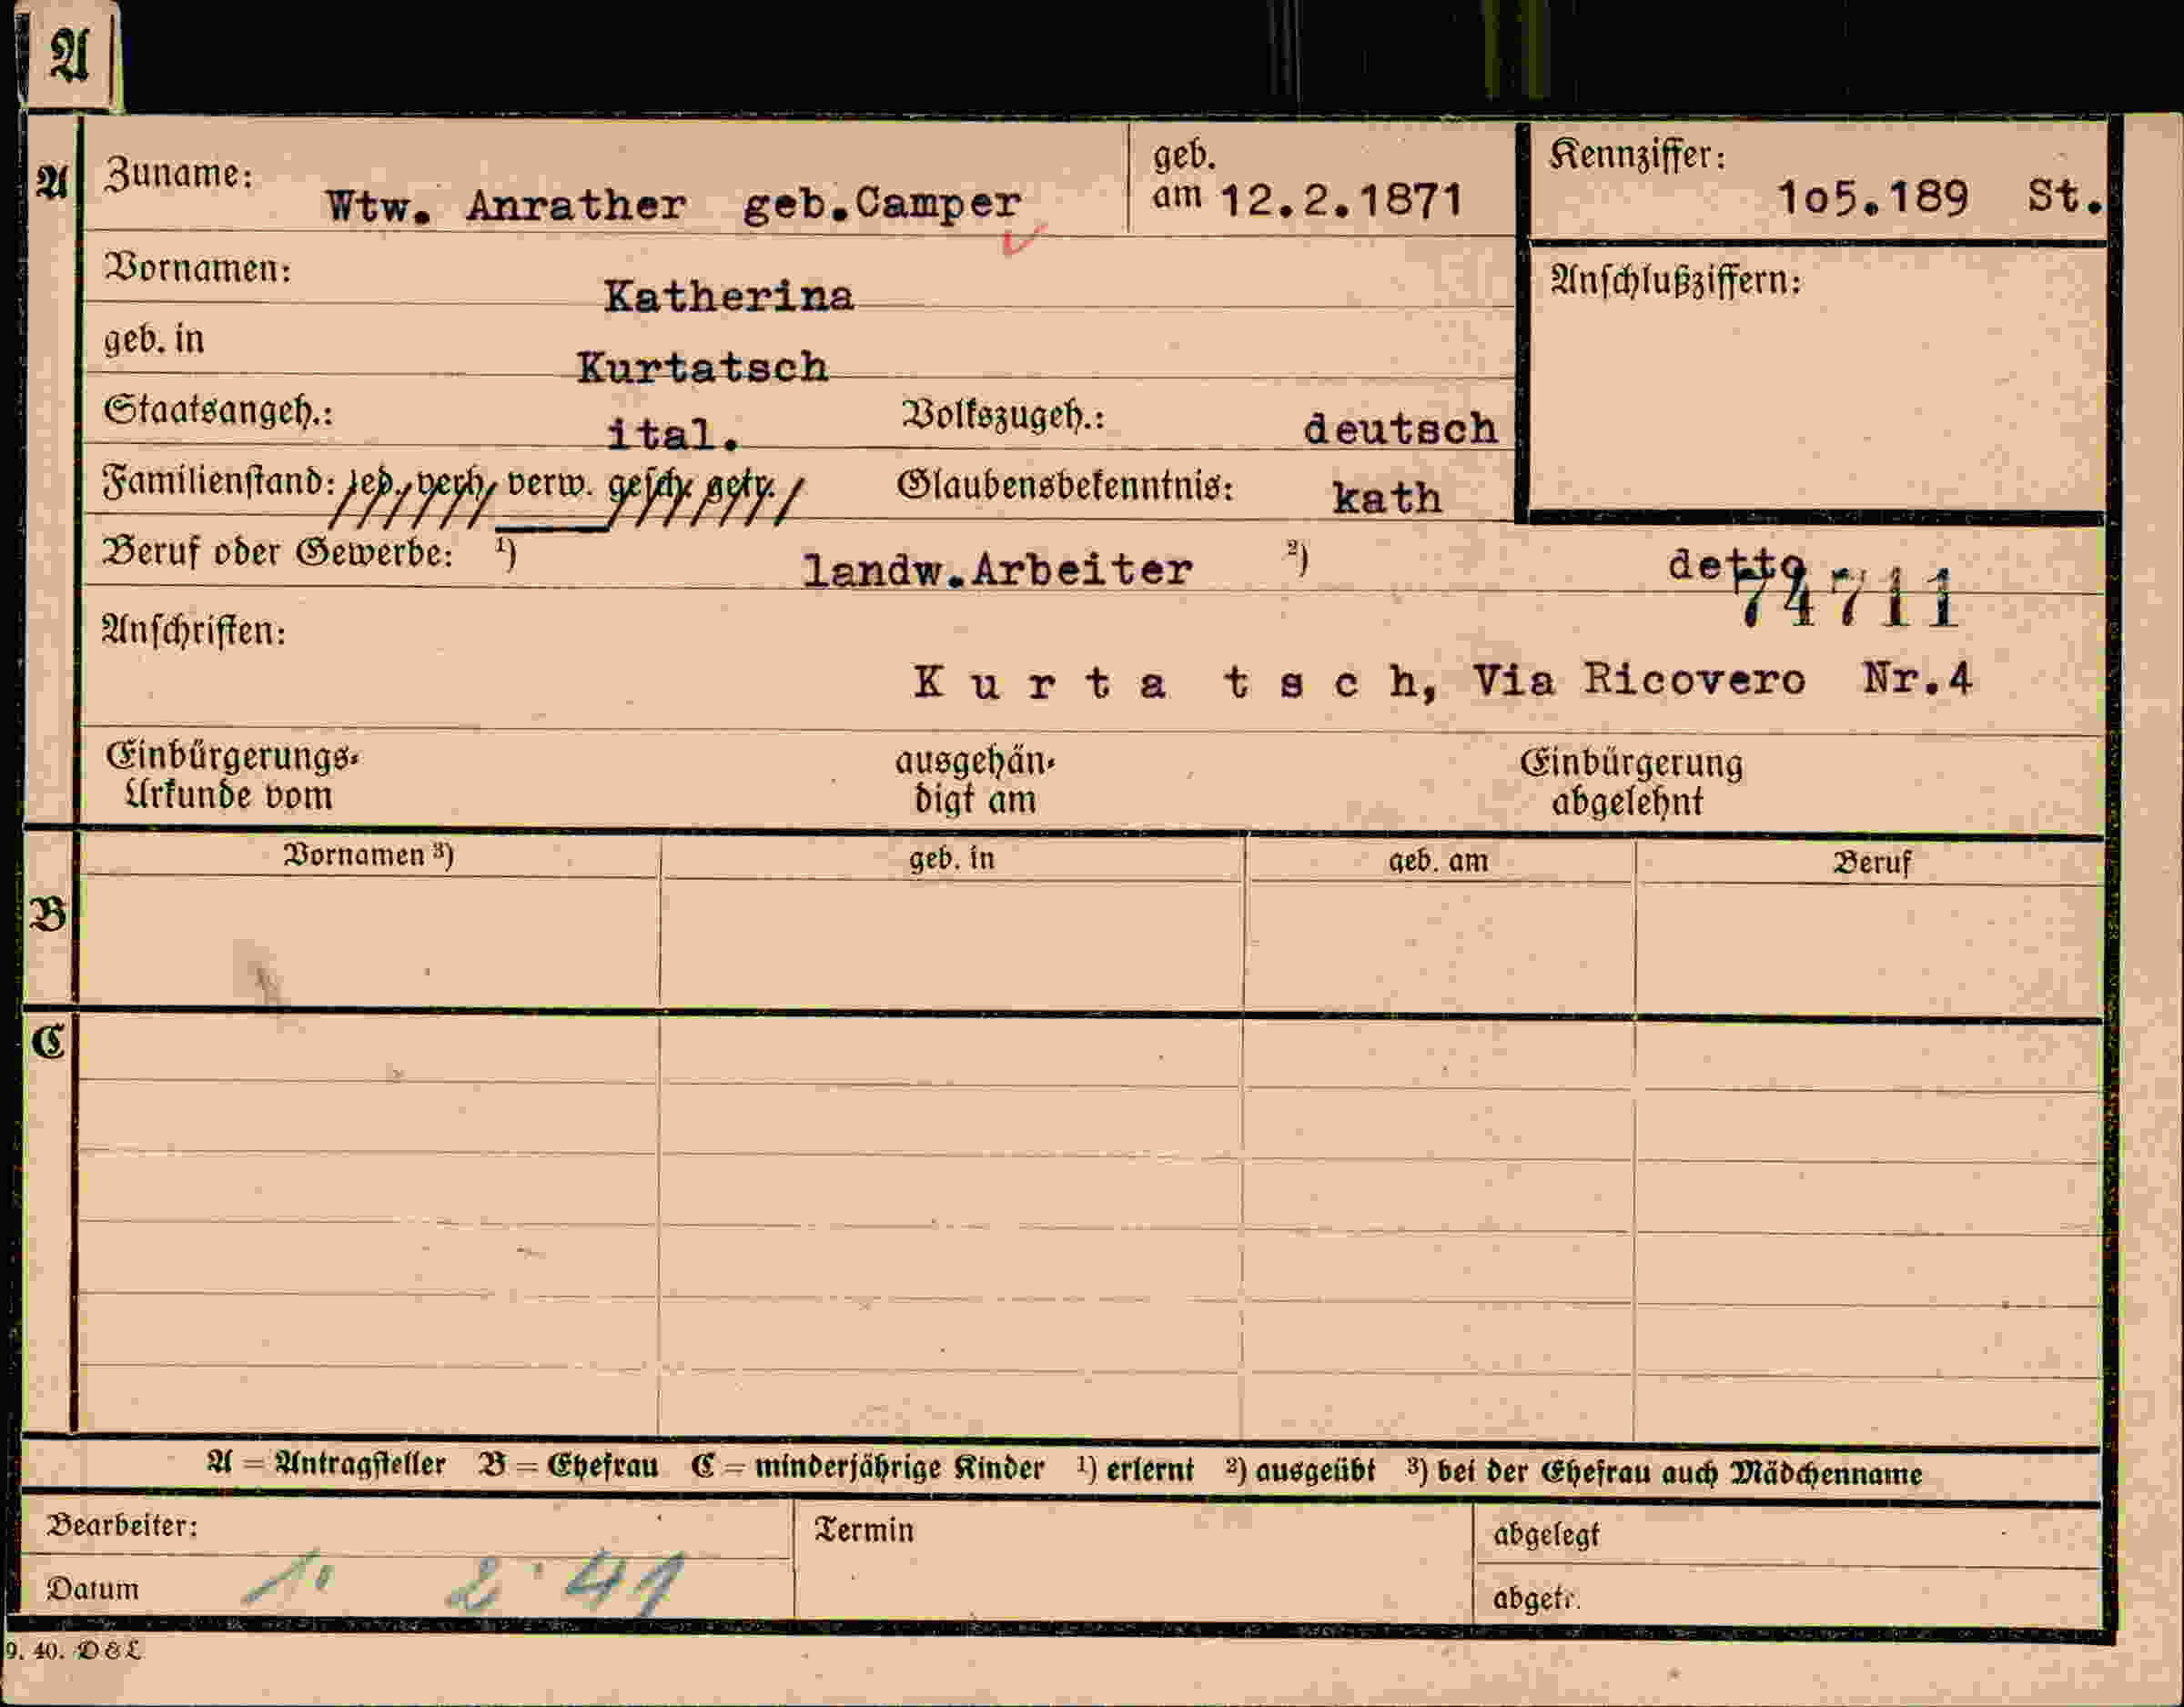 A
A
Zuname: Wtw. Anrather geb.Camper
geb.
am 12.2.1871
Kennziffer: 1o5.189 St.
Vornamen: Katherina
Anschlußziffern:
geb. in Kurtatsch
Staatsangeh.: ital. Volkszugeh.: deutsch
Familienstand: led. verh. verw. gesch. getr. Glaubensbekenntnis: kath
Beruf oder Gewerbe: 1) landw.Arbeiter 2) detto
74711
Anschriften:
K u r t a t s c h, Via Ricovero Nr.4
Einbürgerungs-
Urkunde vom
ausgehän-
digt am
Einbürgerung
abgelehnt
B
Vornamen 3) geb. in geb. am Beruf
C
A = Antragsteller B = Ehefrau C = minderjährige Kinder 1) erlernt 2) ausgeübt 3) bei der Ehefrau auch Mädchenname
Bearbeiter: Termin abgelegt
Datum 1. 2. 41 abgetr.
9. 40. D & L